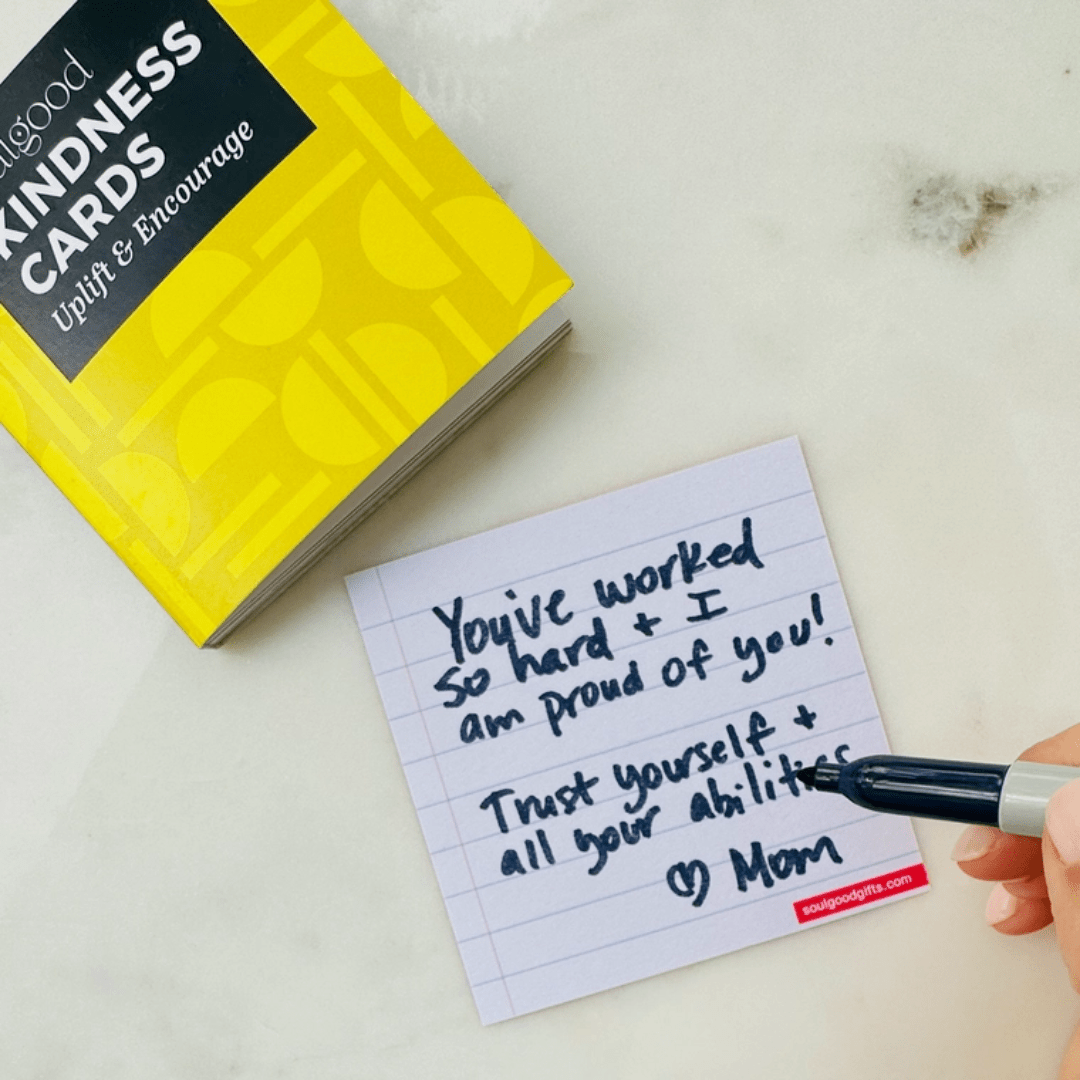 soulgood
KINDNESS
CARDS
Uplift & Encourage
You've worked
so hard + I
am proud of you!
Trust yourself +
all your abilities
♡ Mom
soulgoodgifts.com